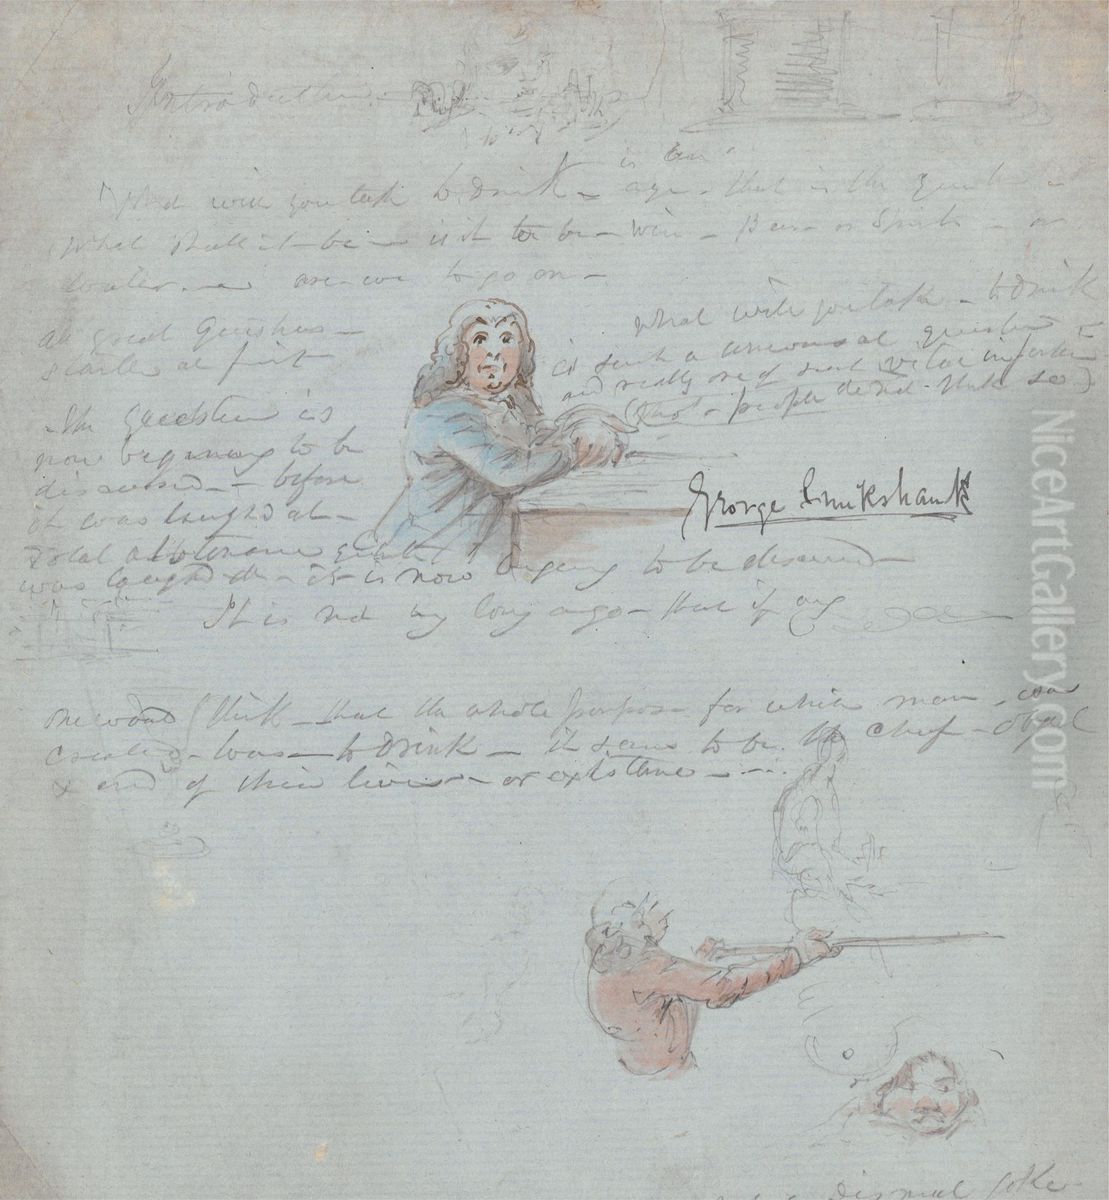 Introduction
What will you take to Drink - is that is the question
What shall it be - is it to be - Wine - Beer - or Spirits - or
Water - are we to go on -
all great Questions -
startle at first
What will you take - to Drink
is such a universal question
and really one of such vital importance
(that - people do not think so)
The Question is
now beginning to be
discussed - before
it was laught at -
Total abstinence
was laught at - it is now begining to be discussed -
George Cruikshank
It is not long ago - that if any
one would think - that the whole purpose for which man was
created - was - to Drink - it seems to be the chief - object
& end of their lives - or existance - - -
a dismal Joke
NiceArtGallery.com